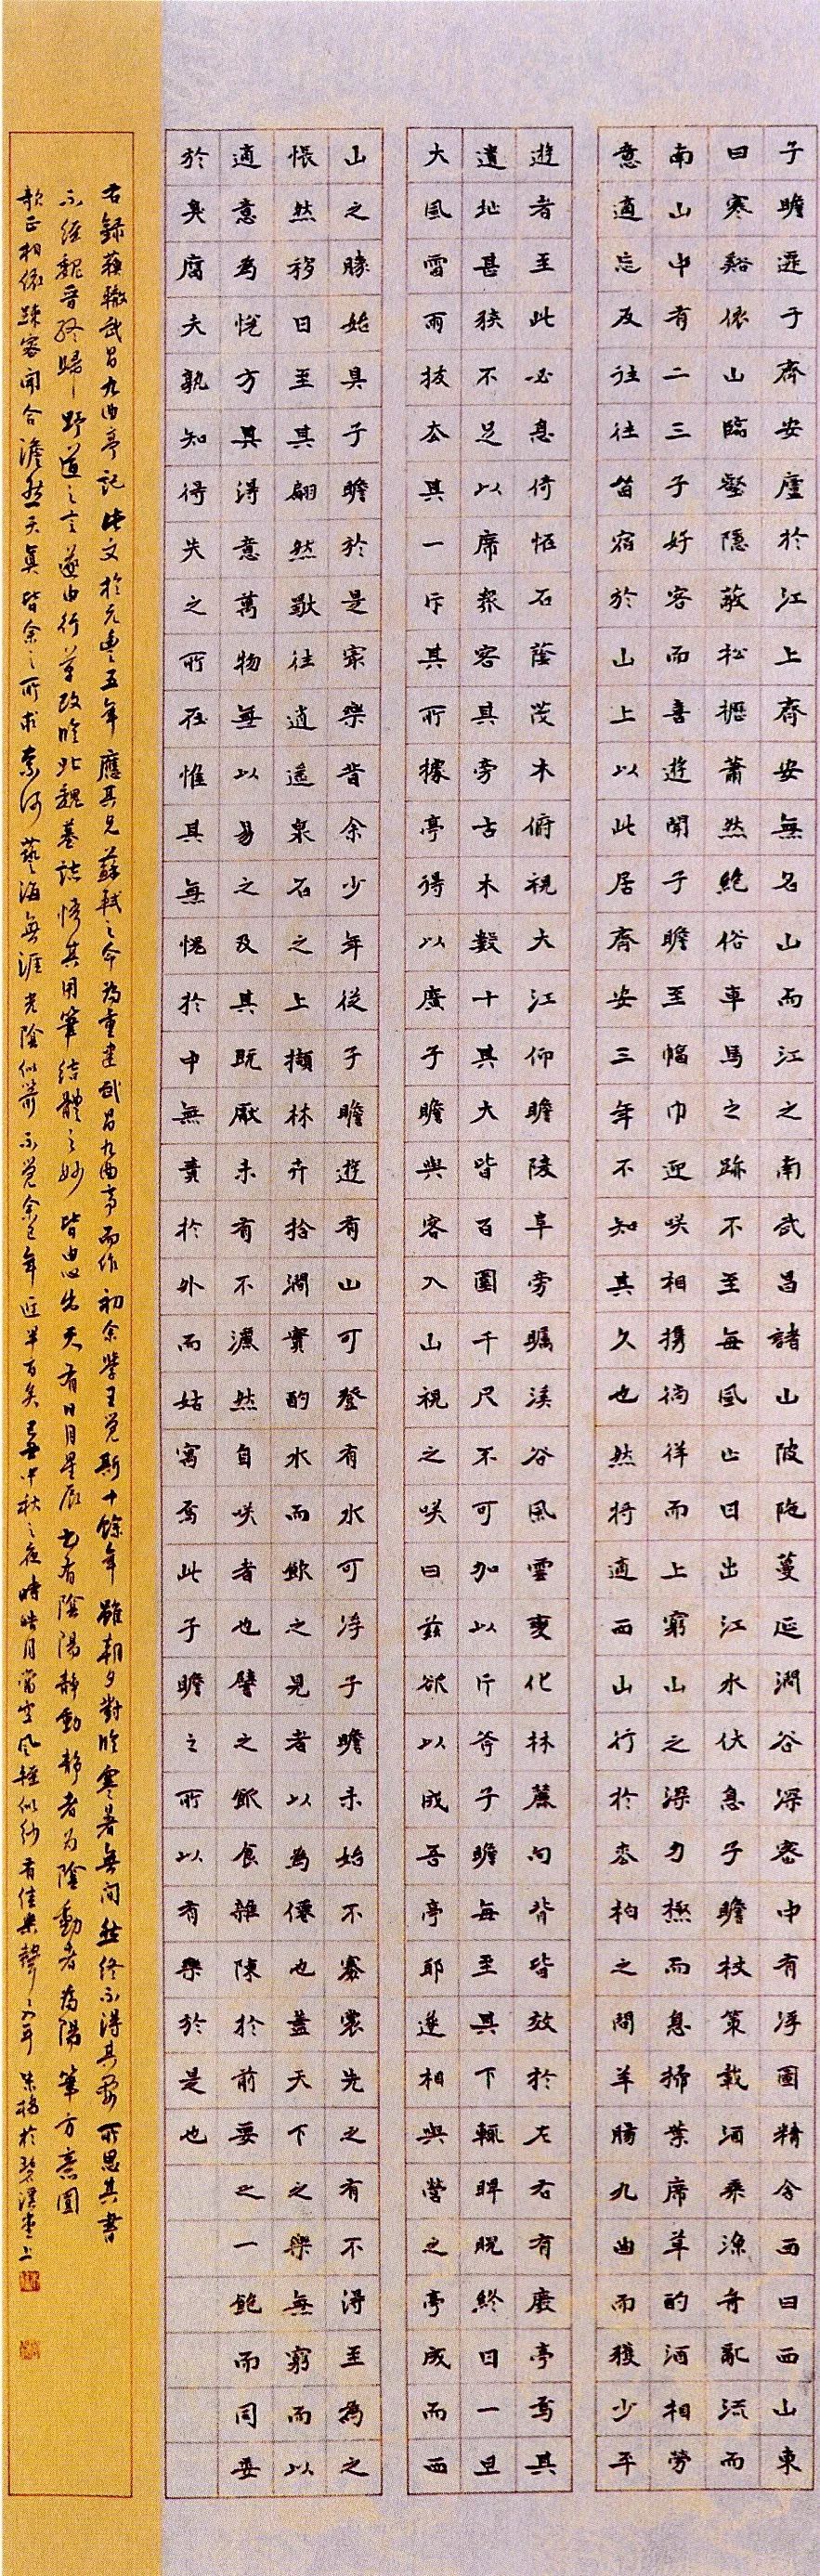 子瞻遷于齊安廬於江上齊安無名山而江之南武昌諸山陂陁蔓延澗谷深密中有浮圖精舍西曰西山東
曰寒谿依山臨壑隱蔽松櫪蕭然絶俗車馬之跡不至每風止日出江水伏息子瞻杖策載酒乘漁舟亂流而
南山中有二三子好客而喜遊聞子瞻至幅巾迎咲相携徜徉而上窮山之深力極而息掃葉席草酌酒相勞
意適忘反往往留宿於山上以此居齊安三年不知其久也然将適西山行於松柏之間羊膓九曲而獲少平
遊者至此必息倚恠石蔭茂木俯視大江仰瞻陵阜旁矚溪谷風雲變化林麓向背皆效於左右有廢亭焉其
遺址甚狹不足以席衆客其旁古木數十其大皆百圍千尺不可加以斤斧子瞻每至其下輒睥睨終日一旦
大風雷雨拔去其一斥其所據亭得以廣子瞻與客入山視之咲曰兹欲以成吾亭耶遂相與營之亭成而西
山之勝始具子瞻於是㝡樂昔余少年從子瞻遊有山可登有水可浮子瞻未始不褰裳先之有不得至為之
悵然移日至其翩然獨往逍遥泉石之上擷林卉拾澗實酌水而飲之見者以為僊也蓋天下之樂無窮而以
適意為悅方其得意萬物無以易之及其既厭未有不灑然自咲者也譬之飲食雜陳於前要之一飽而同委
於臭腐夫孰知得失之所在惟其無愧於中無責於外而姑寓焉此子瞻之所以有樂於是也
右錄蘇轍武昌九曲亭記此文於元豐五年應其兄蘇軾之命為重建武昌九曲亭而作初余學王覺斯十餘年雖朝夕對臨寒暑無間然終不得其要所思其書
不經魏晋終歸野道之言遂由行草改臨北魏墓誌悟其用筆結體之妙皆由心出天有日月星辰書有陰陽静動静者为陰動者為陽筆方意圓
欹正相依疎密開合澹然天真皆余之所求奈何藝海無涯光陰似箭不覺余已年近半百矣中秋之夜時皓月當空風輕似紗有佳樂聲於堂上